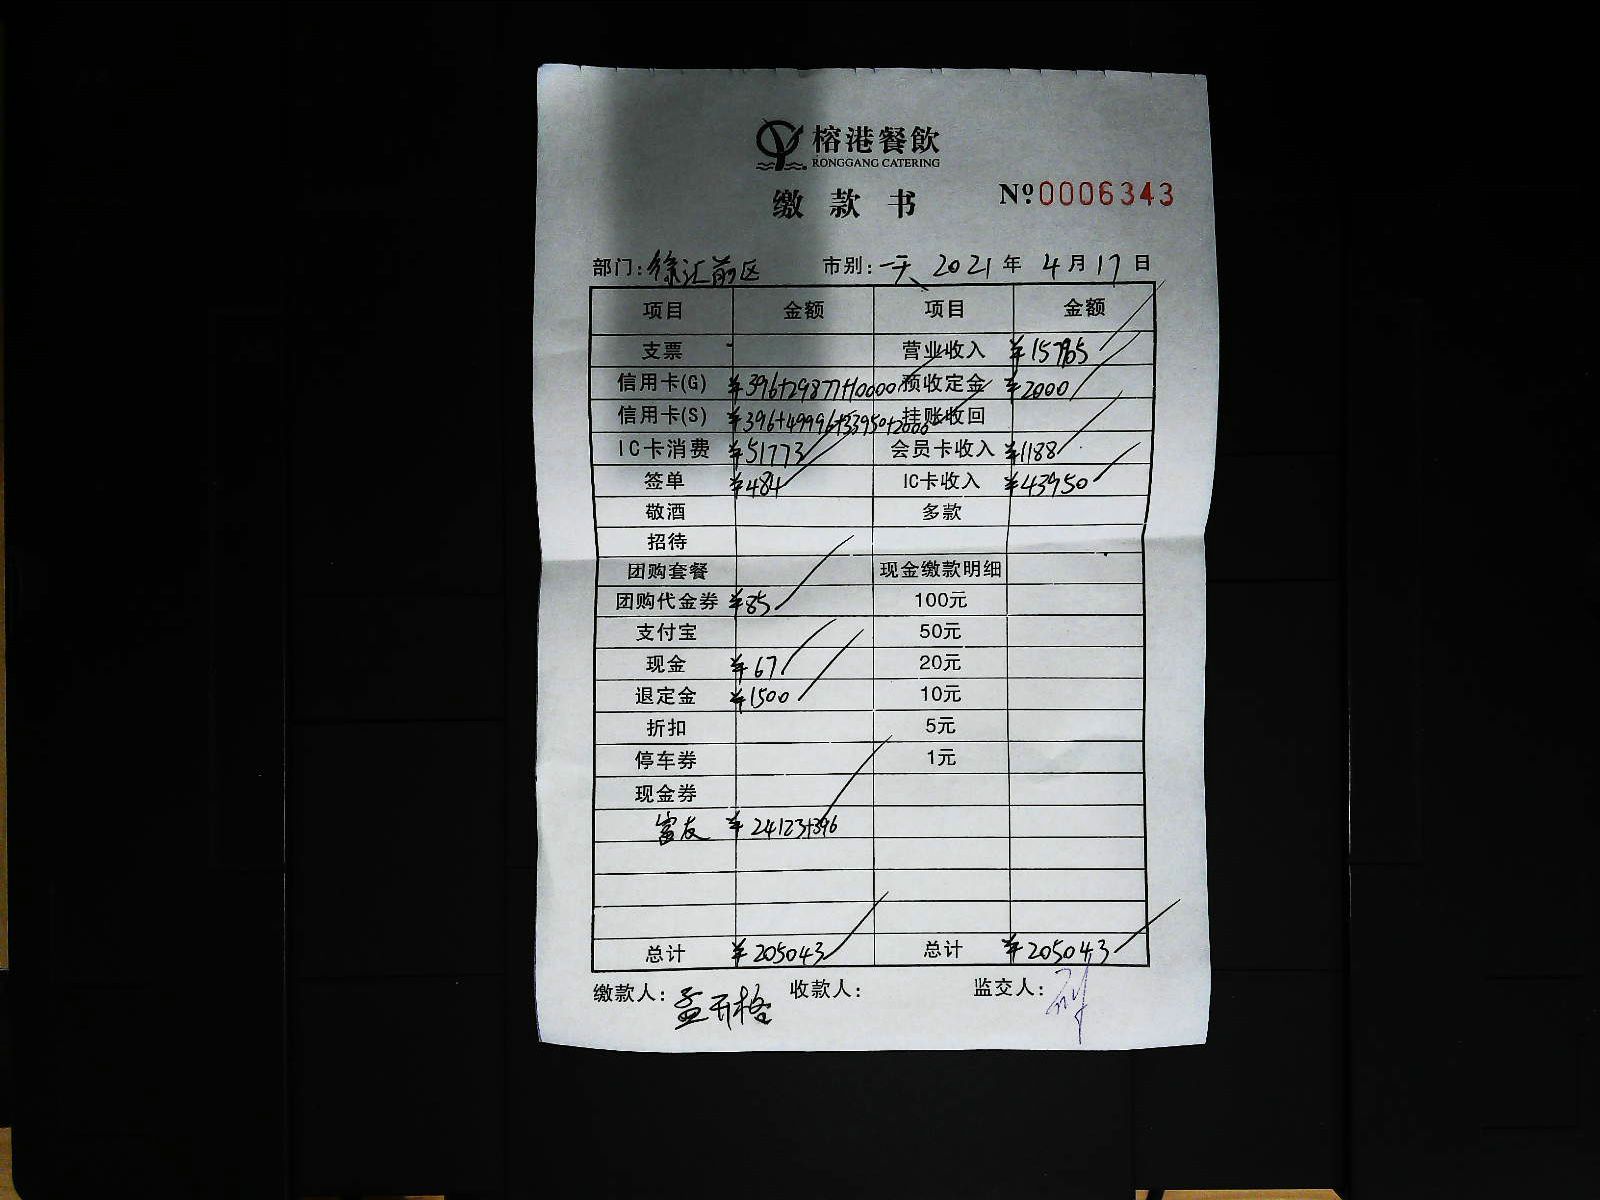 榕港餐飲
RONGGANG CATERING
缴款书 Nº 0006343
部门: 徐汇前区 市别: 一天 2021 年 4 月 17 日
项目 金额 项目 金额
支票 营业收入 ¥157905
信用卡(G) ¥396+29877+10000 预收定金 ¥2000
信用卡(S) ¥396+49996+33950+2000 挂账收回
IC卡消费 ¥51773 会员卡收入 ¥1188
签单 ¥484 IC卡收入 ¥43950
敬酒 多款
招待
团购套餐 现金缴款明细
团购代金券 ¥85 100元
支付宝 50元
现金 ¥67 20元
退定金 ¥1500 10元
折扣 5元
停车券 1元
现金券
富友 ¥24123+396
总计 ¥205043 总计 ¥205043
缴款人: 孟开格 收款人: 监交人: